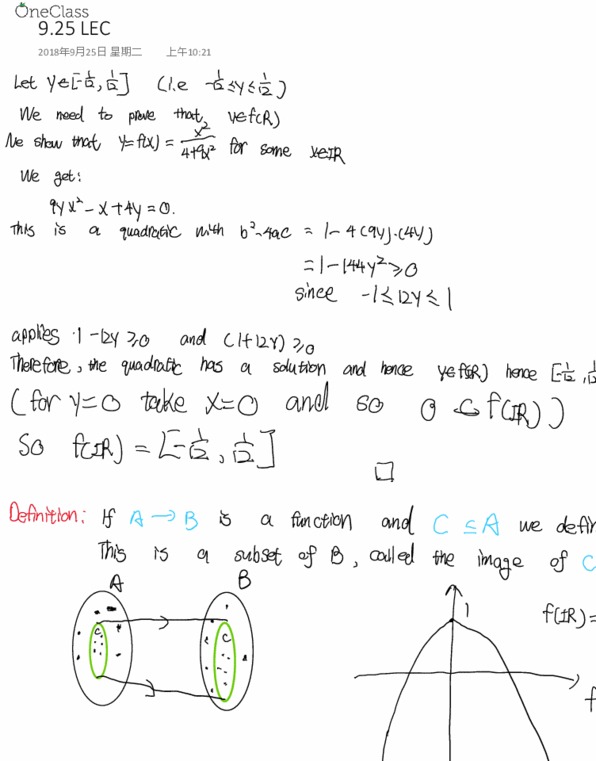 OneClass
9.25 LEC
2018年9月25日 星期二 上午10:21
Let y∈[-1/12, 1/12] (i.e -1/12≤y≤1/12)
We need to prove that y∈f(R)
We show that y=f(x) = x²/(4+9x²) for some x∈IR
We get:
9yx² - x + 4y = 0.
This is a quadratic with b²-4ac = 1-4(9y)·(4y)
= 1-144y² ≥ 0
since -1 ≤ 12y ≤ 1
applies 1-12y ≥ 0 and (1+12y) ≥ 0
Therefore, the quadratic has a solution and hence y∈f(R) hence [-1/12, 1/12
(for y=0 take x=0 and so 0 ∈ f(IR))
So f(IR) = [-1/12, 1/12]
□
Definition: If A → B is a function and C ⊆ A we defin
This is a subset of B, called the image of C
A B
C C
1
f(IR)=
f